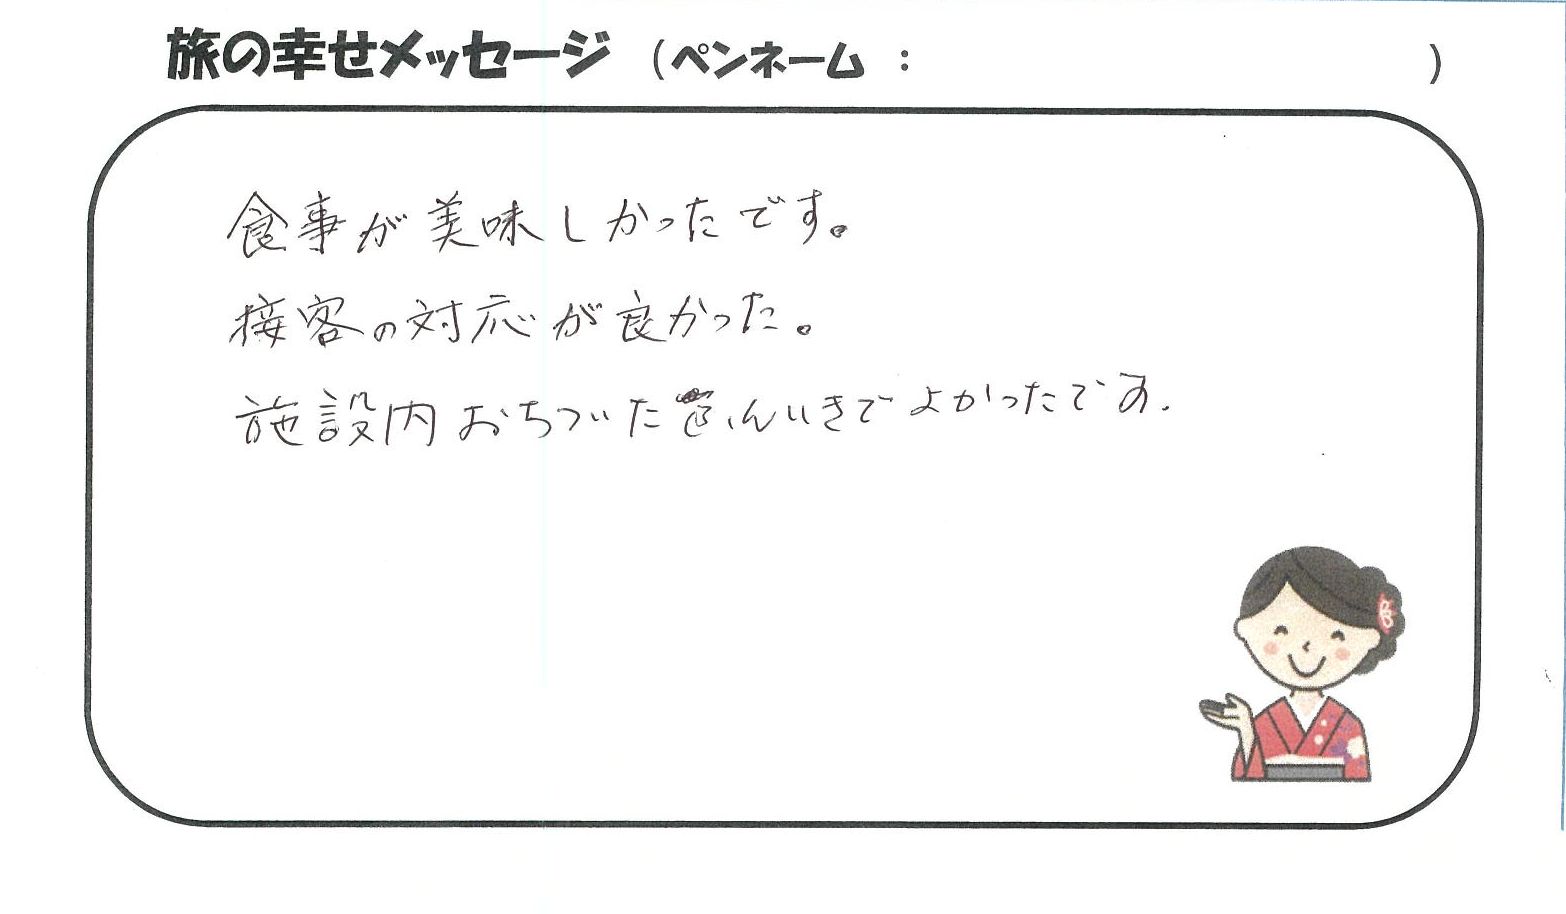 旅の幸せメッセージ (ペンネーム : )
食事が美味しかったです。
接客の対応が良かった。
施設内おちついたふんいきでよかったです.